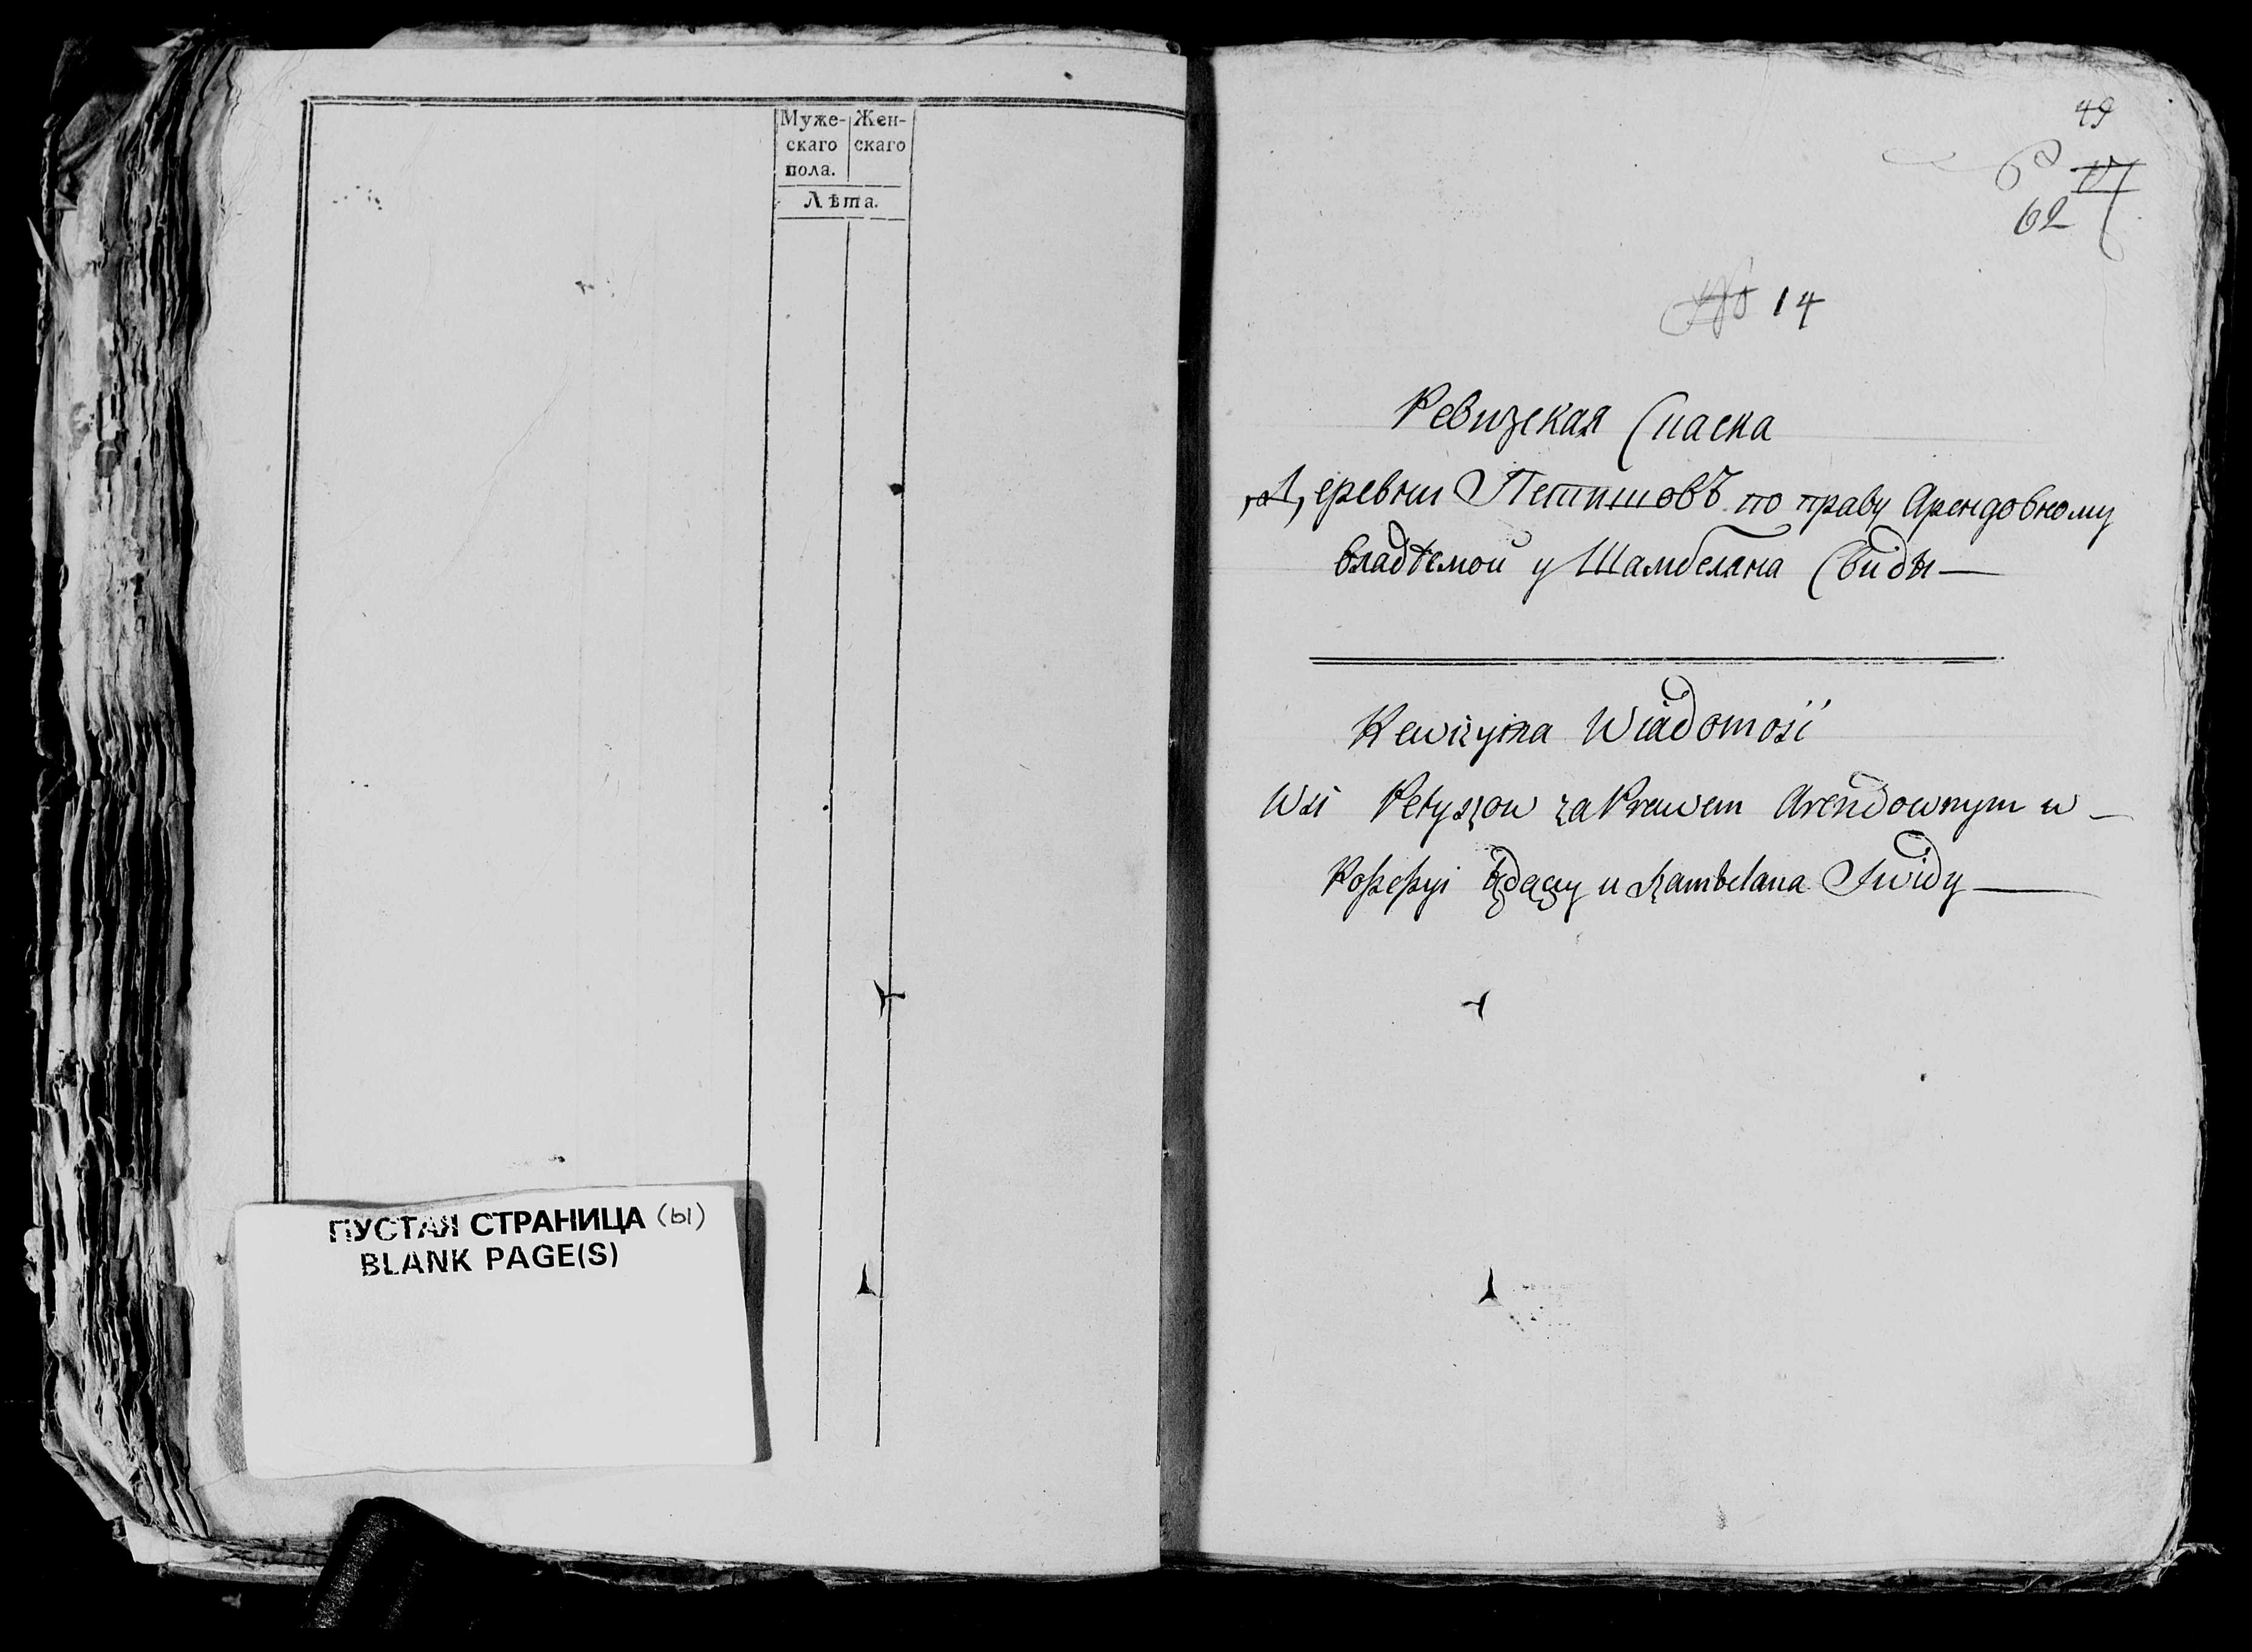 Муже-
скаго
пола.
Жен-
скаго
Лѣта.
ПУСТАЯ СТРАНИЦА (ы)
BLANK PAGE(S)
49
62
14
Ревизская Скаска
Деревни Петишовъ по праву Арендовному
владѣемой у Шамбеляна Свиды —
Rewizyina Wiadomość
Wsi Petyszow za Prawem Arendownym w —
Possessyi będącey u Szambelana Swidy —